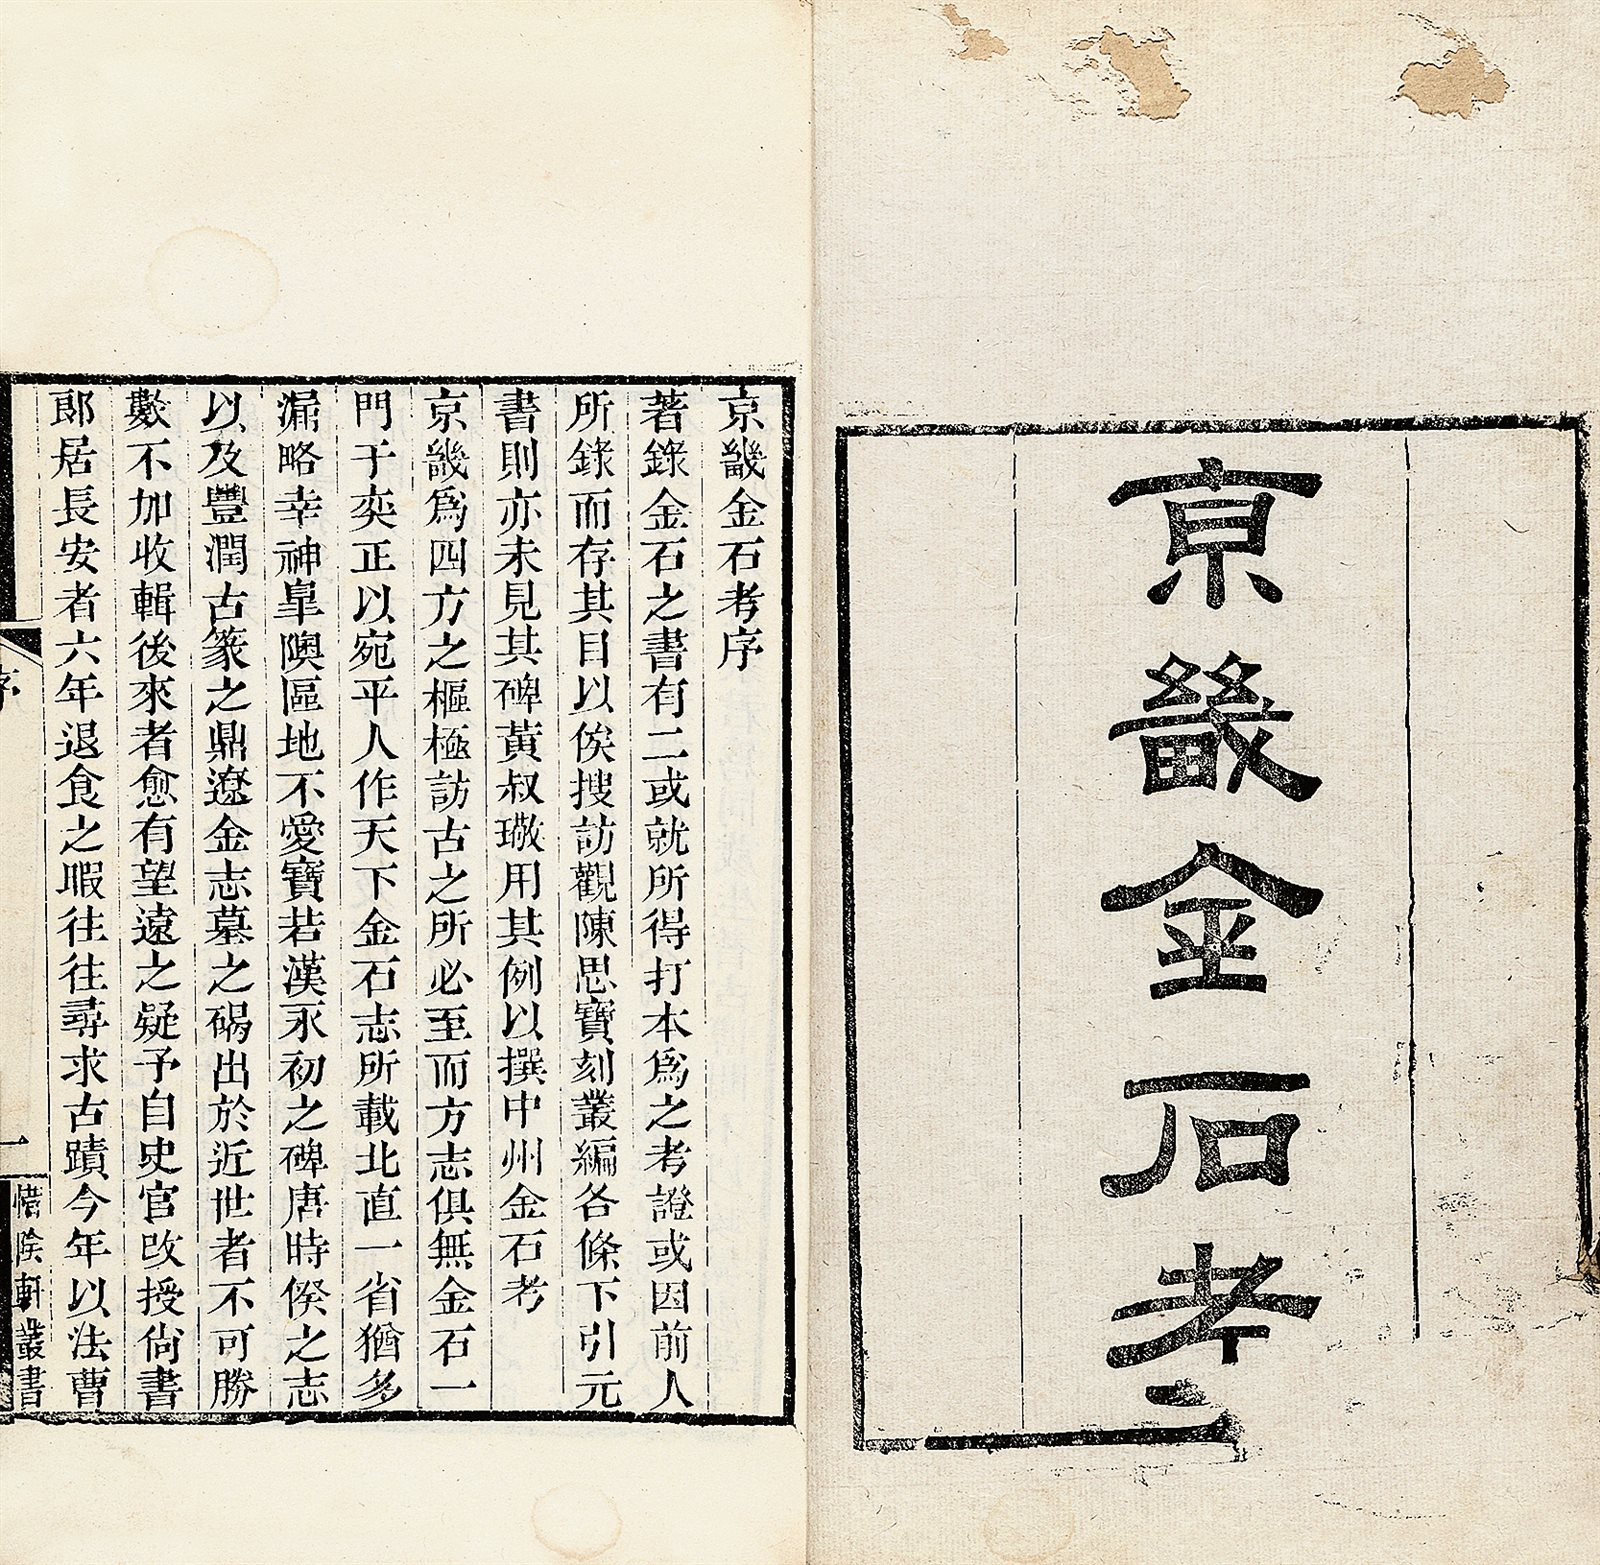 京畿金石考二
京畿金石考序
著錄金石之書有二或就所得打本爲之考證或因前人
所錄而存其目以俟搜訪觀陳思寶刻叢編各條下引元
書則亦未見其碑黃叔璥用其例以撰中州金石考
京畿爲四方之樞極訪古之所必至而方志俱無金石一
門于奕正以宛平人作天下金石志所載北直一省猶多
漏略幸神皐隩區地不愛寶若漢永初之碑唐時候之志
以及豐潤古篆之鼎遼金志墓之碣出於近世者不可勝
數不加收輯後來者愈有望遠之疑予自史官改授尙書
郎居長安者六年退食之暇往往尋求古蹟今年以法曹
序
一
惜陰軒叢書